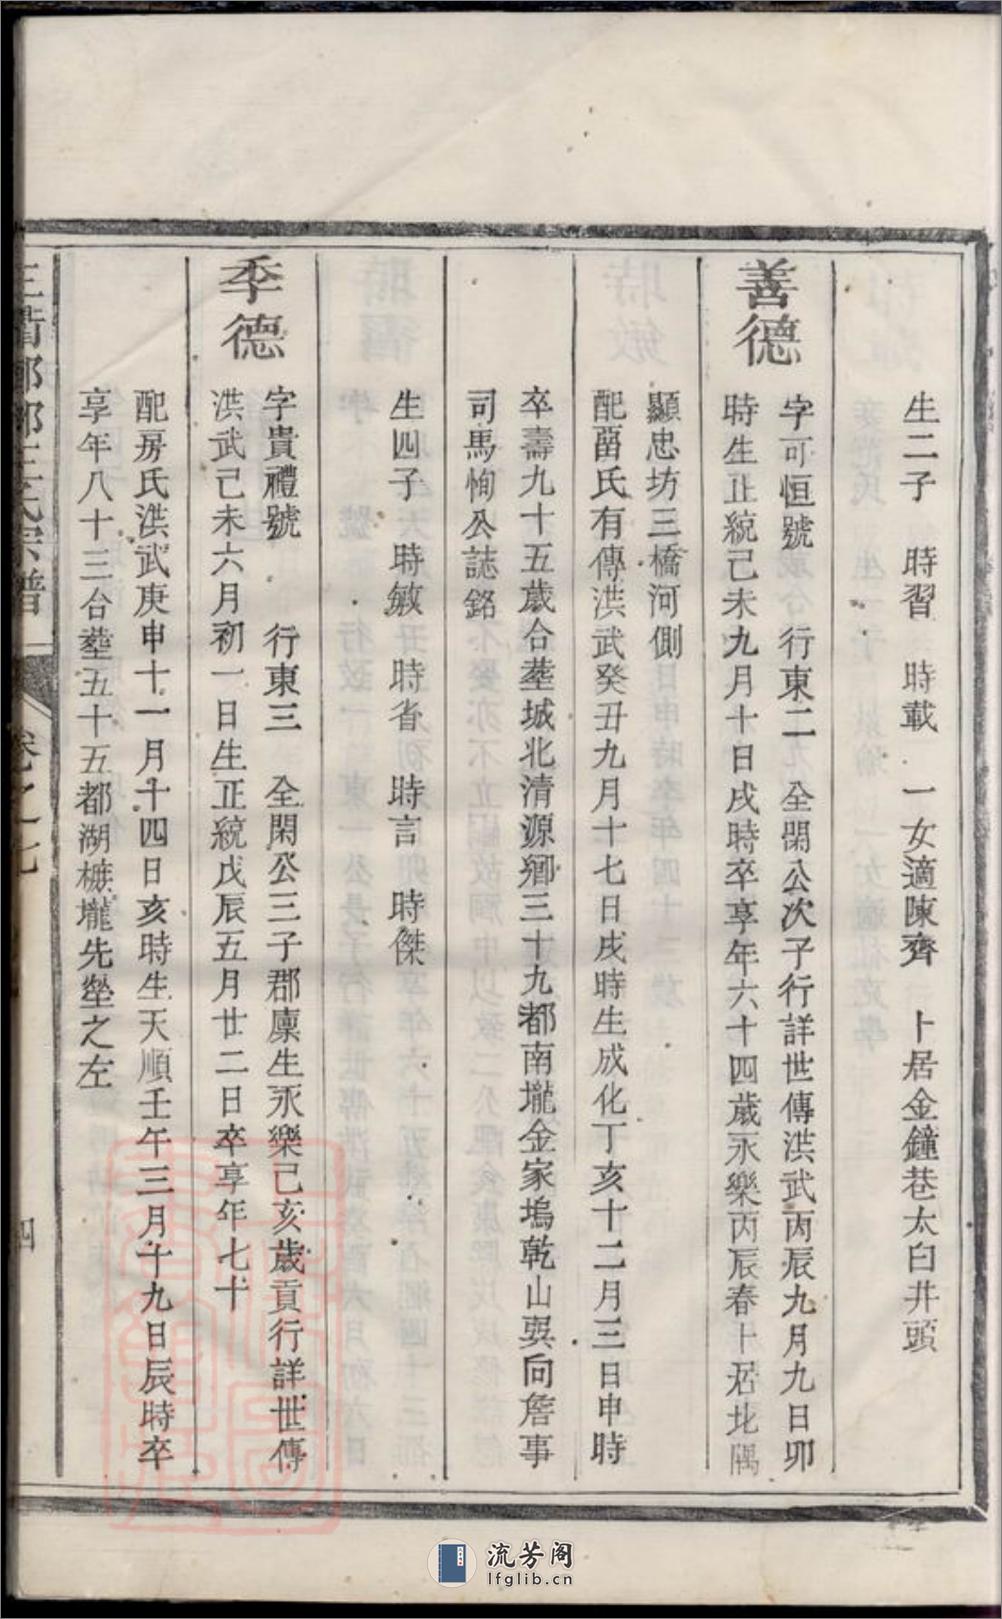 生二子　時習　時載　一女適陳齊　卜居金鐘巷太白井頭
善德
字可恒號　行東二　全閑公次子行詳世傳洪武丙辰九月九日卯
時生正統己未九月十日戌時卒享年六十四歲永樂丙辰春卜居北隅
顯忠坊三橋河側
配留氏有傳洪武癸丑九月十七日戌時生成化丁亥十二月三日申時
卒壽九十五歲合塟城北清源鄉三十九都南壠金家塢乾山巽向詹事
司馬恂公誌銘
生四子　時敏　時省　時言　時傑
季德
字貴禮號　行東三　全閑公三子郡廪生永樂己亥歲貢行詳世傳
洪武己未六月初一日生正統戊辰五月廿二日卒享年七十
配房氏洪武庚申十一月十四日亥時生天順壬午三月十九日辰時卒
享年八十三合塟五十五都湖㯊壠先塋之左
三衢郎郎王氏宗譜
卷之七
四
流芳阁
lfglib.cn